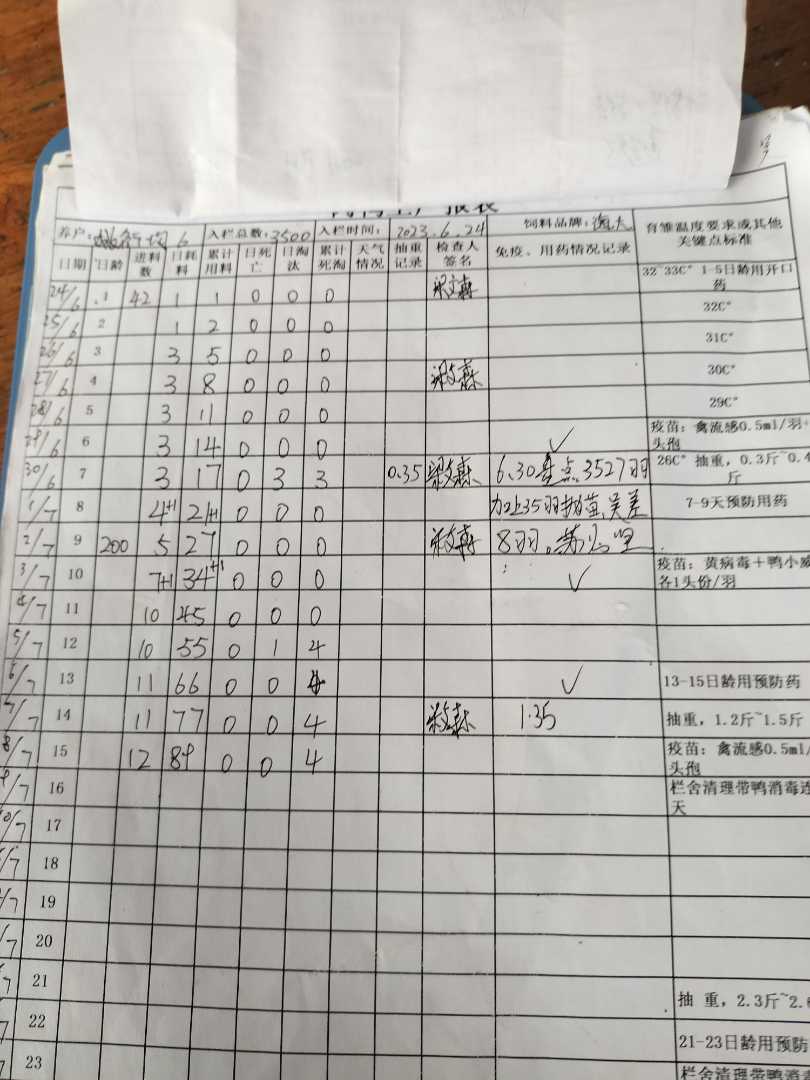 报表
养户: 6 入栏总数:3500 入栏时间:2023.6.24 饲料品牌: 育雏温度要求或其他关键点标准
日期 日龄 进料数 日耗料 累计用料 日死亡 日淘汰 累计死淘 天气情况 抽重记录 检查人签名 免疫、用药情况记录
24/6 1 42 1 1 0 0 0 32~33C° 1-5日龄用开口药
25/6 2 1 2 0 0 0 32C°
26/6 3 3 5 0 0 0 31C°
27/6 4 3 8 0 0 0 30C°
28/6 5 3 11 0 0 0 29C°
29/6 6 3 14 0 0 0 ✓ 疫苗:禽流感0.5ml/羽+头孢
30/6 7 3 17 0 3 3 0.35 6.30盘点3527羽 26C° 抽重,0.3斤~0.4斤
1/7 8 4+1 21+1 0 0 0 加上35羽抛苗,误差 7-9天预防用药
2/7 9 200 5 27 0 0 0 8羽。
3/7 10 7+1 34+1 0 0 0 ✓ 疫苗:黄病毒+鸭小 各1头份/羽
4/7 11 10 45 0 0 0
5/7 12 10 55 0 1 4
6/7 13 11 66 0 0 4 ✓ 13-15日龄用预防药
7/7 14 11 77 0 0 4 1.35 抽重,1.2斤~1.5斤
8/7 15 12 89 0 0 4 疫苗:禽流感0.5ml/ 头孢
9/7 16 栏舍清理带鸭消毒连 天
10/7 17
/7 18
/7 19
/7 20
/7 21 抽 重,2.3斤~2.
22 21-23日龄用预防
23 栏舍清理带鸭消毒